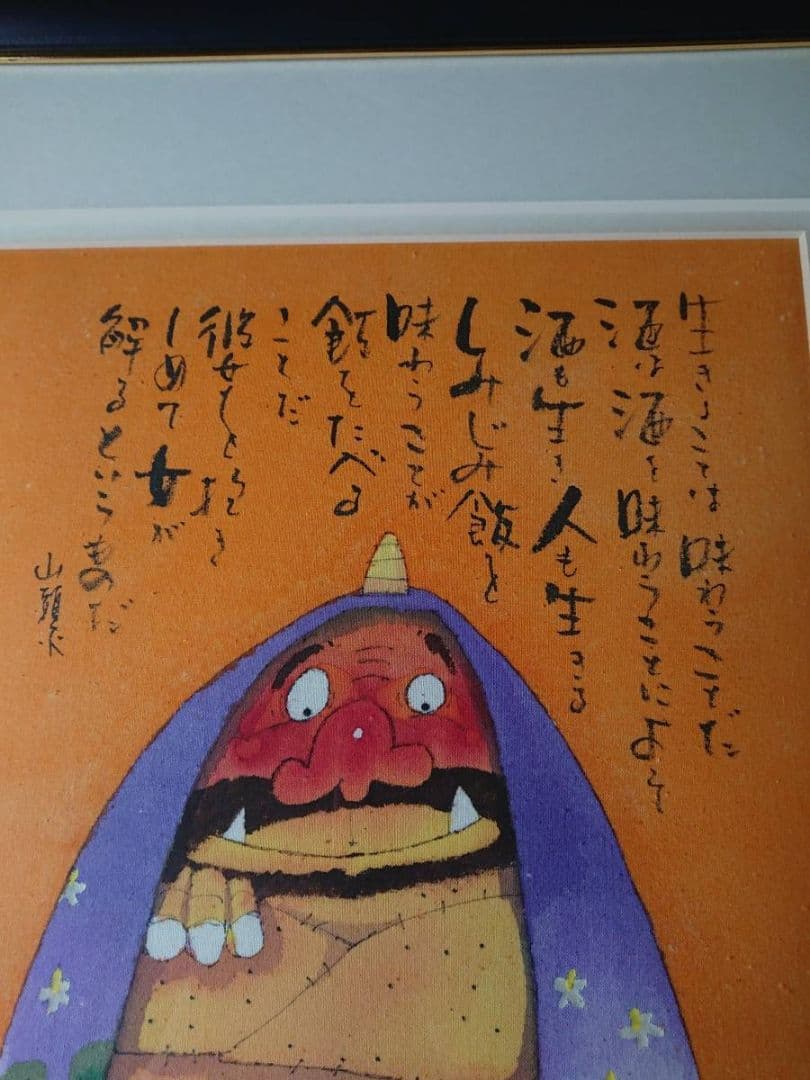 生きることは味わうことだ
酒は酒を味わうことによって
酒も生き人も生きる
しみじみ飯を
味わうことが
飯をたべる
ことだ
彼女を抱き
しめて女が
解るというものだ
山頭火